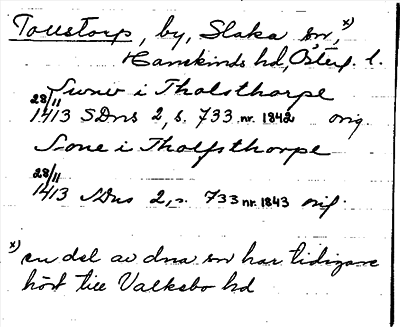 Tollstorp, by, Slaka sn, x)
Hanekinds hd, Östergl. l.
Sunw i Tholsthorpe
28/11
1413 SDns 2, s. 733 nr. 1842 orig.
Sone i Tholfsthorpe
28/11
1413 SDns 2, s. 733 nr. 1843 orig.
x) en del av dna sn har tidigare
hört till Valkebo hd